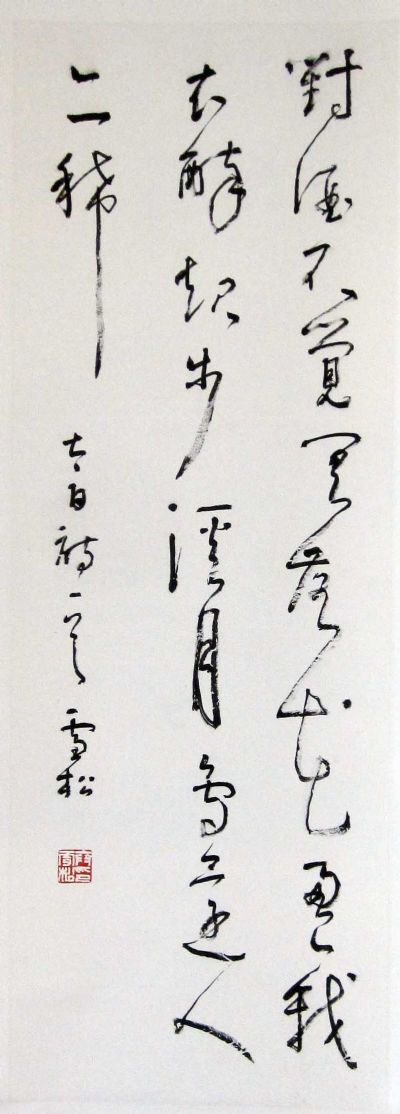 對酒不覺暝落花盈我
衣醉起步溪月鳥還人
亦稀
太白詩一首 雪松